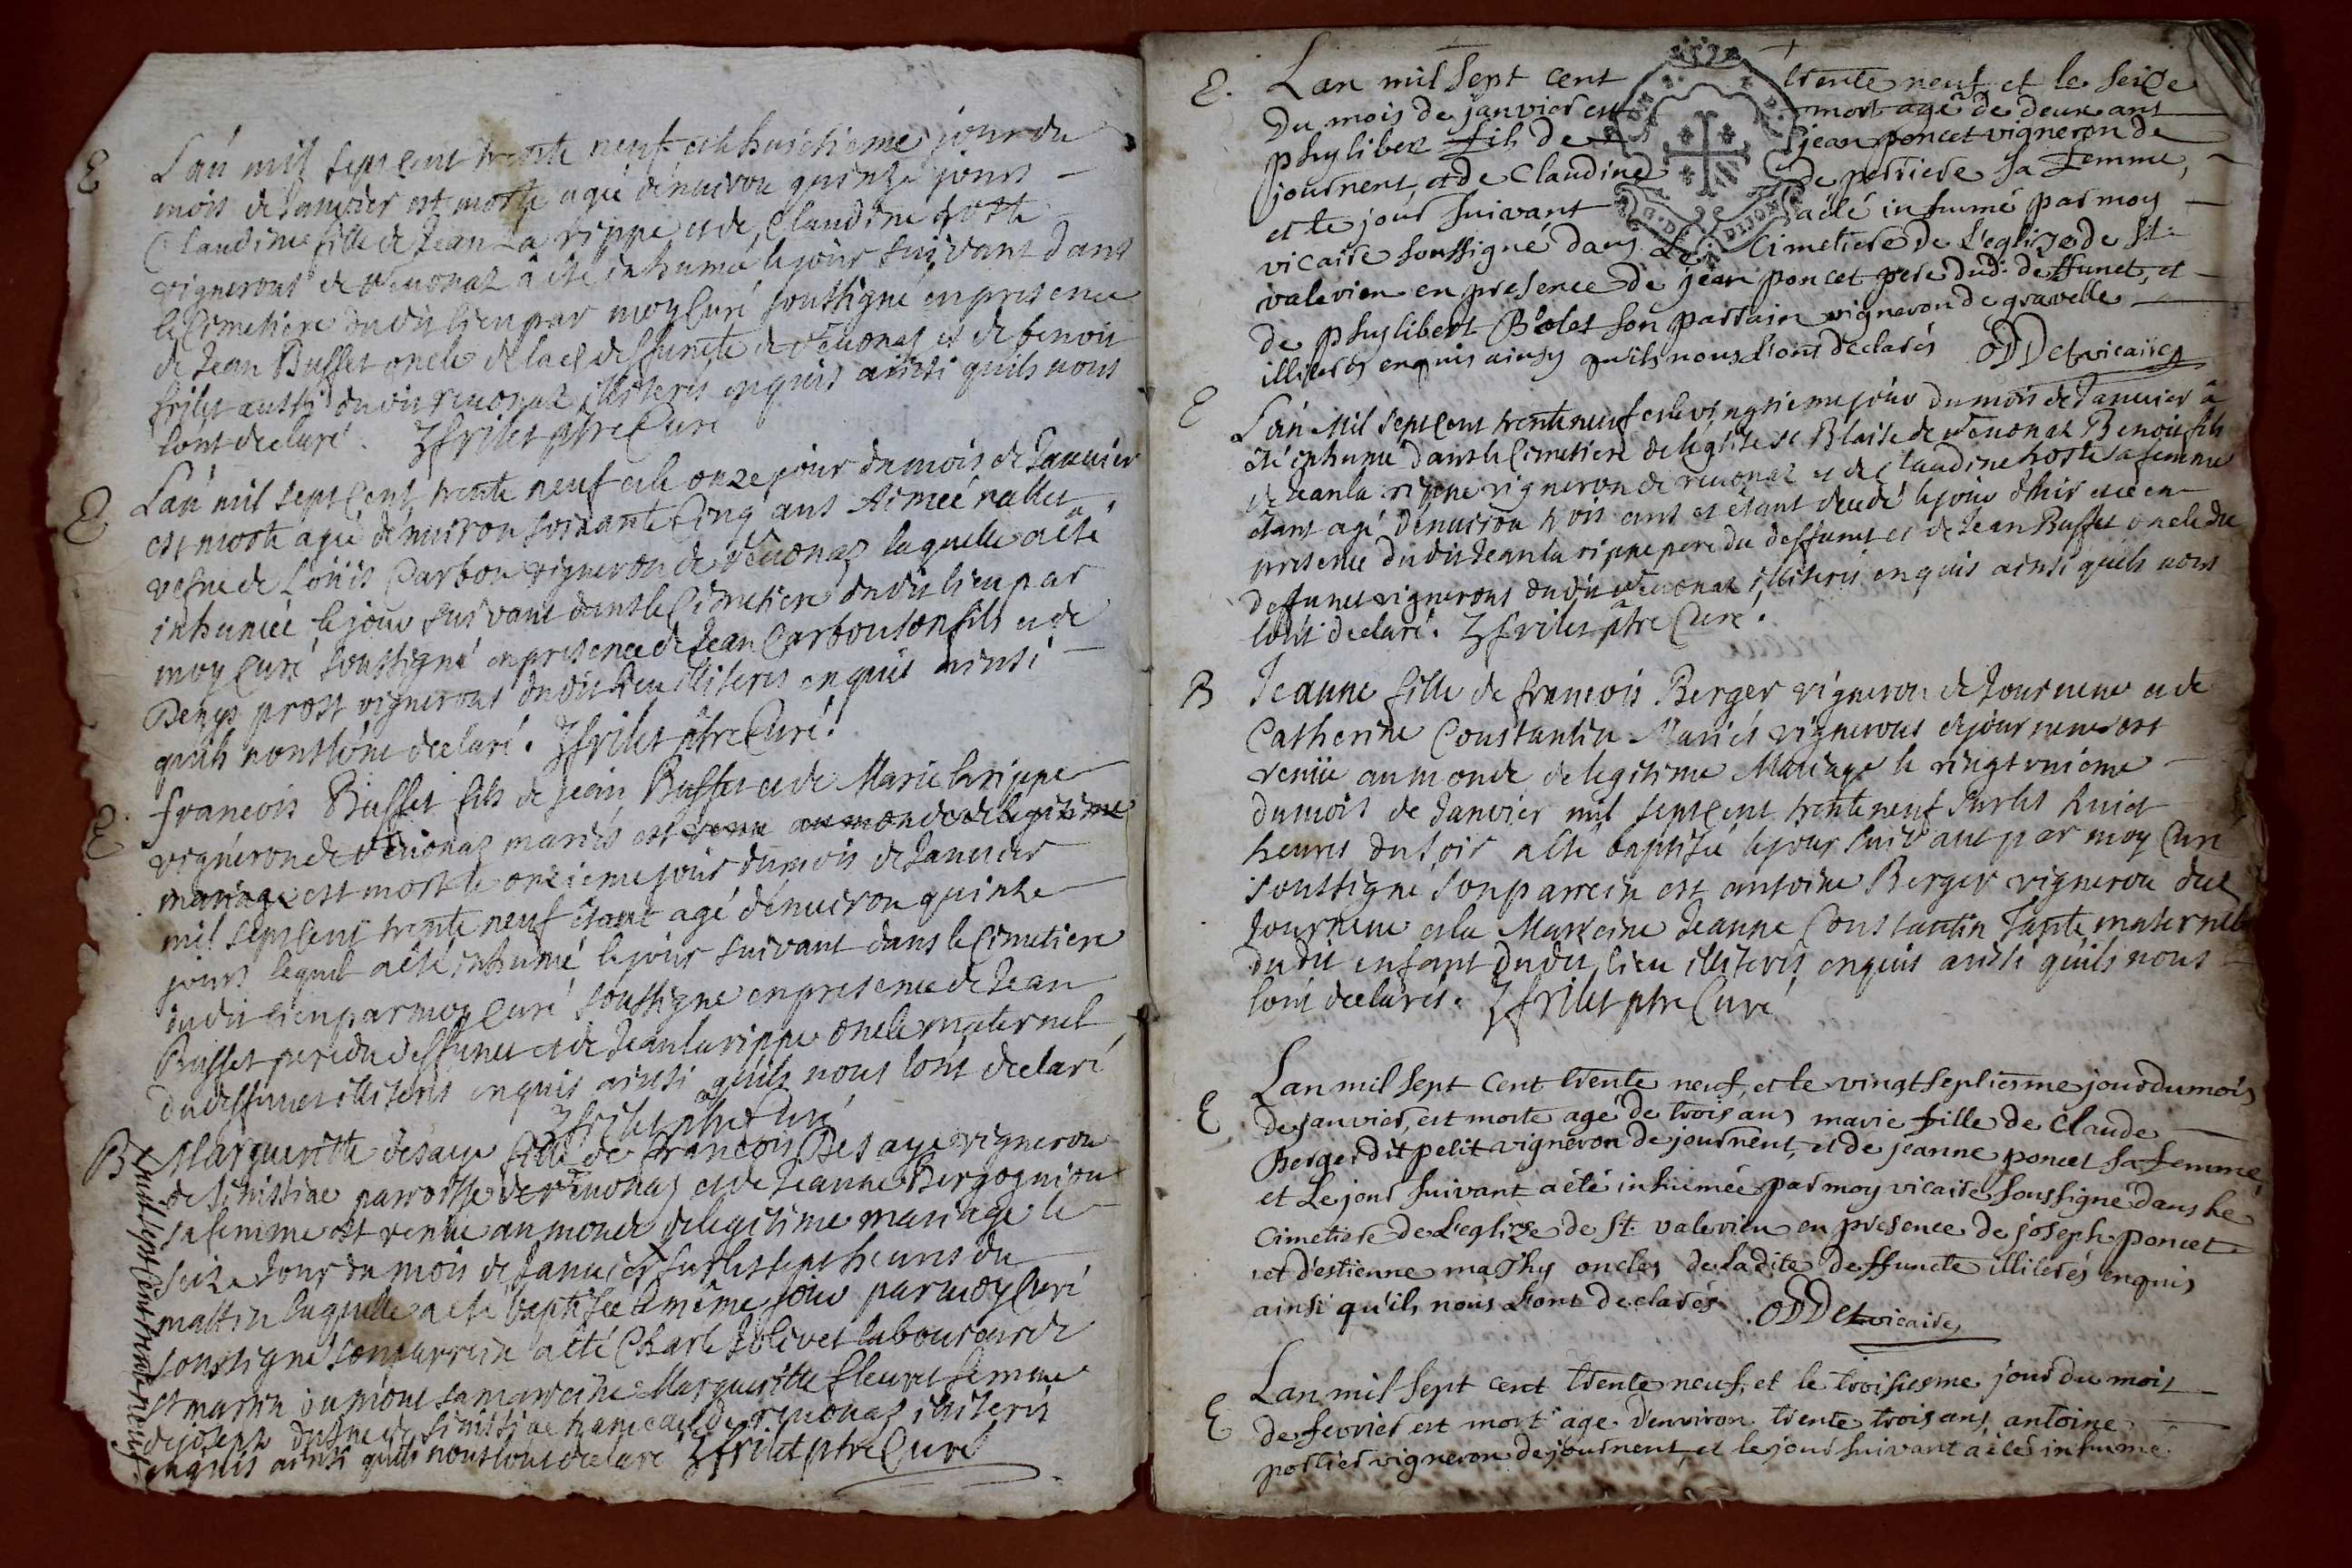 E
L'an mil sept cent trente neuf et le huictieme jour du
mois de Janvier est morte agée d'enuiron quinze jours
Claudine fille de Jean La rippe et de Claudine hoste
vignerons de Veuonas a été inhumé le jour suivant dans
le Cimetiere dudit lieu par moy Curé soussigné en presence
de Jean Buffet oncle de lad deffuncte de veuonas et de benoit
frilet aussi dudit veuonas illiteris enquis ainsi quils nous
lont declaré. frilet ptre Curé
E
L'an mil sept cent trente neuf et le onze jour du mois de Januier
est morte agée d'enuiron soixante Cinq ans Aimeé nallet
vefue de Loüis Carbon vigneron de Veuonas laquelle a été
inhumeé le jour suivant dans le Cimetiere dudit lieu par
moy Curé soussigné en presence de Jean Carbon son fils et de
Denys prost vignerons dudit lieu illiteris enquis ainsi
quils nous lont declaré. frilet ptre Curé.
E
françois Buffet fils de Jean Buffet et de Marie larippe
vigneron de Veuonas mariés est venu au monde de legitime
mariage est mort le onzieme jour du mois de Januier
mil sept cent trente neuf étant agé d'enuiron quinze
jours lequel a été inhumé le jour suivant dans le Cimetiere
dudit lieu par moy Curé soussigné en presence de Jean
Buffet pere du deffunct et de Jean larippe oncle maternel
du deffunct illiteris enquis ainsi quils nous lont declaré
frilet ptre Curé
B
Margueritte desaye fille de françois Desaye vigneron
de Simissiae parroisse de veuonas et de Jeanne Bergognion
sa femme est venüe au monde de legitime mariage le
seize Jour du mois de Januier sur les sept heures du
mattin laquelle a été baptisée le même jour par moy Curé
soussigné son parrein a été Charle Jolivet laboureur de
st martin du mont sa marreine Margueritte fleuret femme
de joseph dufue de Simissiae hameau de veuonas illiteris
enquis ainsi quils nous lont declaré frilet ptre Curé
mil sept cent trente neuf.
E.
L'an mil sept cent trente neuf et le seize
du mois de janvier est mort agé de deux ans
phylibert fils de jean poncet vigneron de
journent, et de Claudine de perriere sa femme,
et le jour suivant a été inhumé par moy
vicaire soussigné dans Le Cimetiere de L'eglize de St.
valerien en presence de jean poncet pere dud. deffunct, et
de phylibert Bolet son parrain vigneron de gravelle
illiterés enquis ainsy qu'ils nous L'ont declarés ODDet vicaire
D.D. DIJON
E
L'an Mil sept cent trente neuf et le vingtieme jour du mois de Januier â
été inhumé dans le Cimetiere de leglise st Blaise de Veuonas Benoit fils
de Jean la rippe vigneron de veuonas et de Claudine hoste sa femme
étant agé d'enuiron trois ans et étant decedé le jour d'hier et ce en
presence dudit Jean la rippe pere du deffunct et de Jean Buffet oncle du
deffunct vignerons dudit veuonas illiteris enquis ainsi quils nous
lont declaré. frilet ptre Curé.
B
Jeanne fille de françois Berger vigneron de Journent et de
Catherine Constantin Mariés vignerons de journent est
venüe au monde de legitime Mariage le vingt unieme
du mois de Janvier mil sept cent trente neuf sur les huict
heures du soir a été baptisée le jour suivant par moy Curé
soussigné son parrein est antoine Berger vigneron dud
Journent et la Marreine Jeanne Constantin Tante maternelle
dudit enfant dudit lieu illiteris enquis aussi quils nous
lont declarés. frilet ptre Curé
E
L'an mil sept cent trente neuf, et le vingt septiesme jour du mois
de janvier, est morte agé de trois ans marie fille de Claude
Berger dit petit vigneron de journent, et de jeanne poncet sa femme,
et Le jour suivant a été inhumée par moy vicaire soussigné dans Le
Cimetiere de L'eglize de St. valerien en presence de joseph poncet
et d'estienne mathy oncles de ladite deffuncte illiterés enquis
ainsi qu'ils nous L'ont declarés. ODDet vicaire
E
L'an mil sept cent trente neuf, et le troisiesme jour du mois
de fevrier est mort agé d'environ trente trois ans antoine
portier vigneron de journent, et le jour suivant a été inhumé